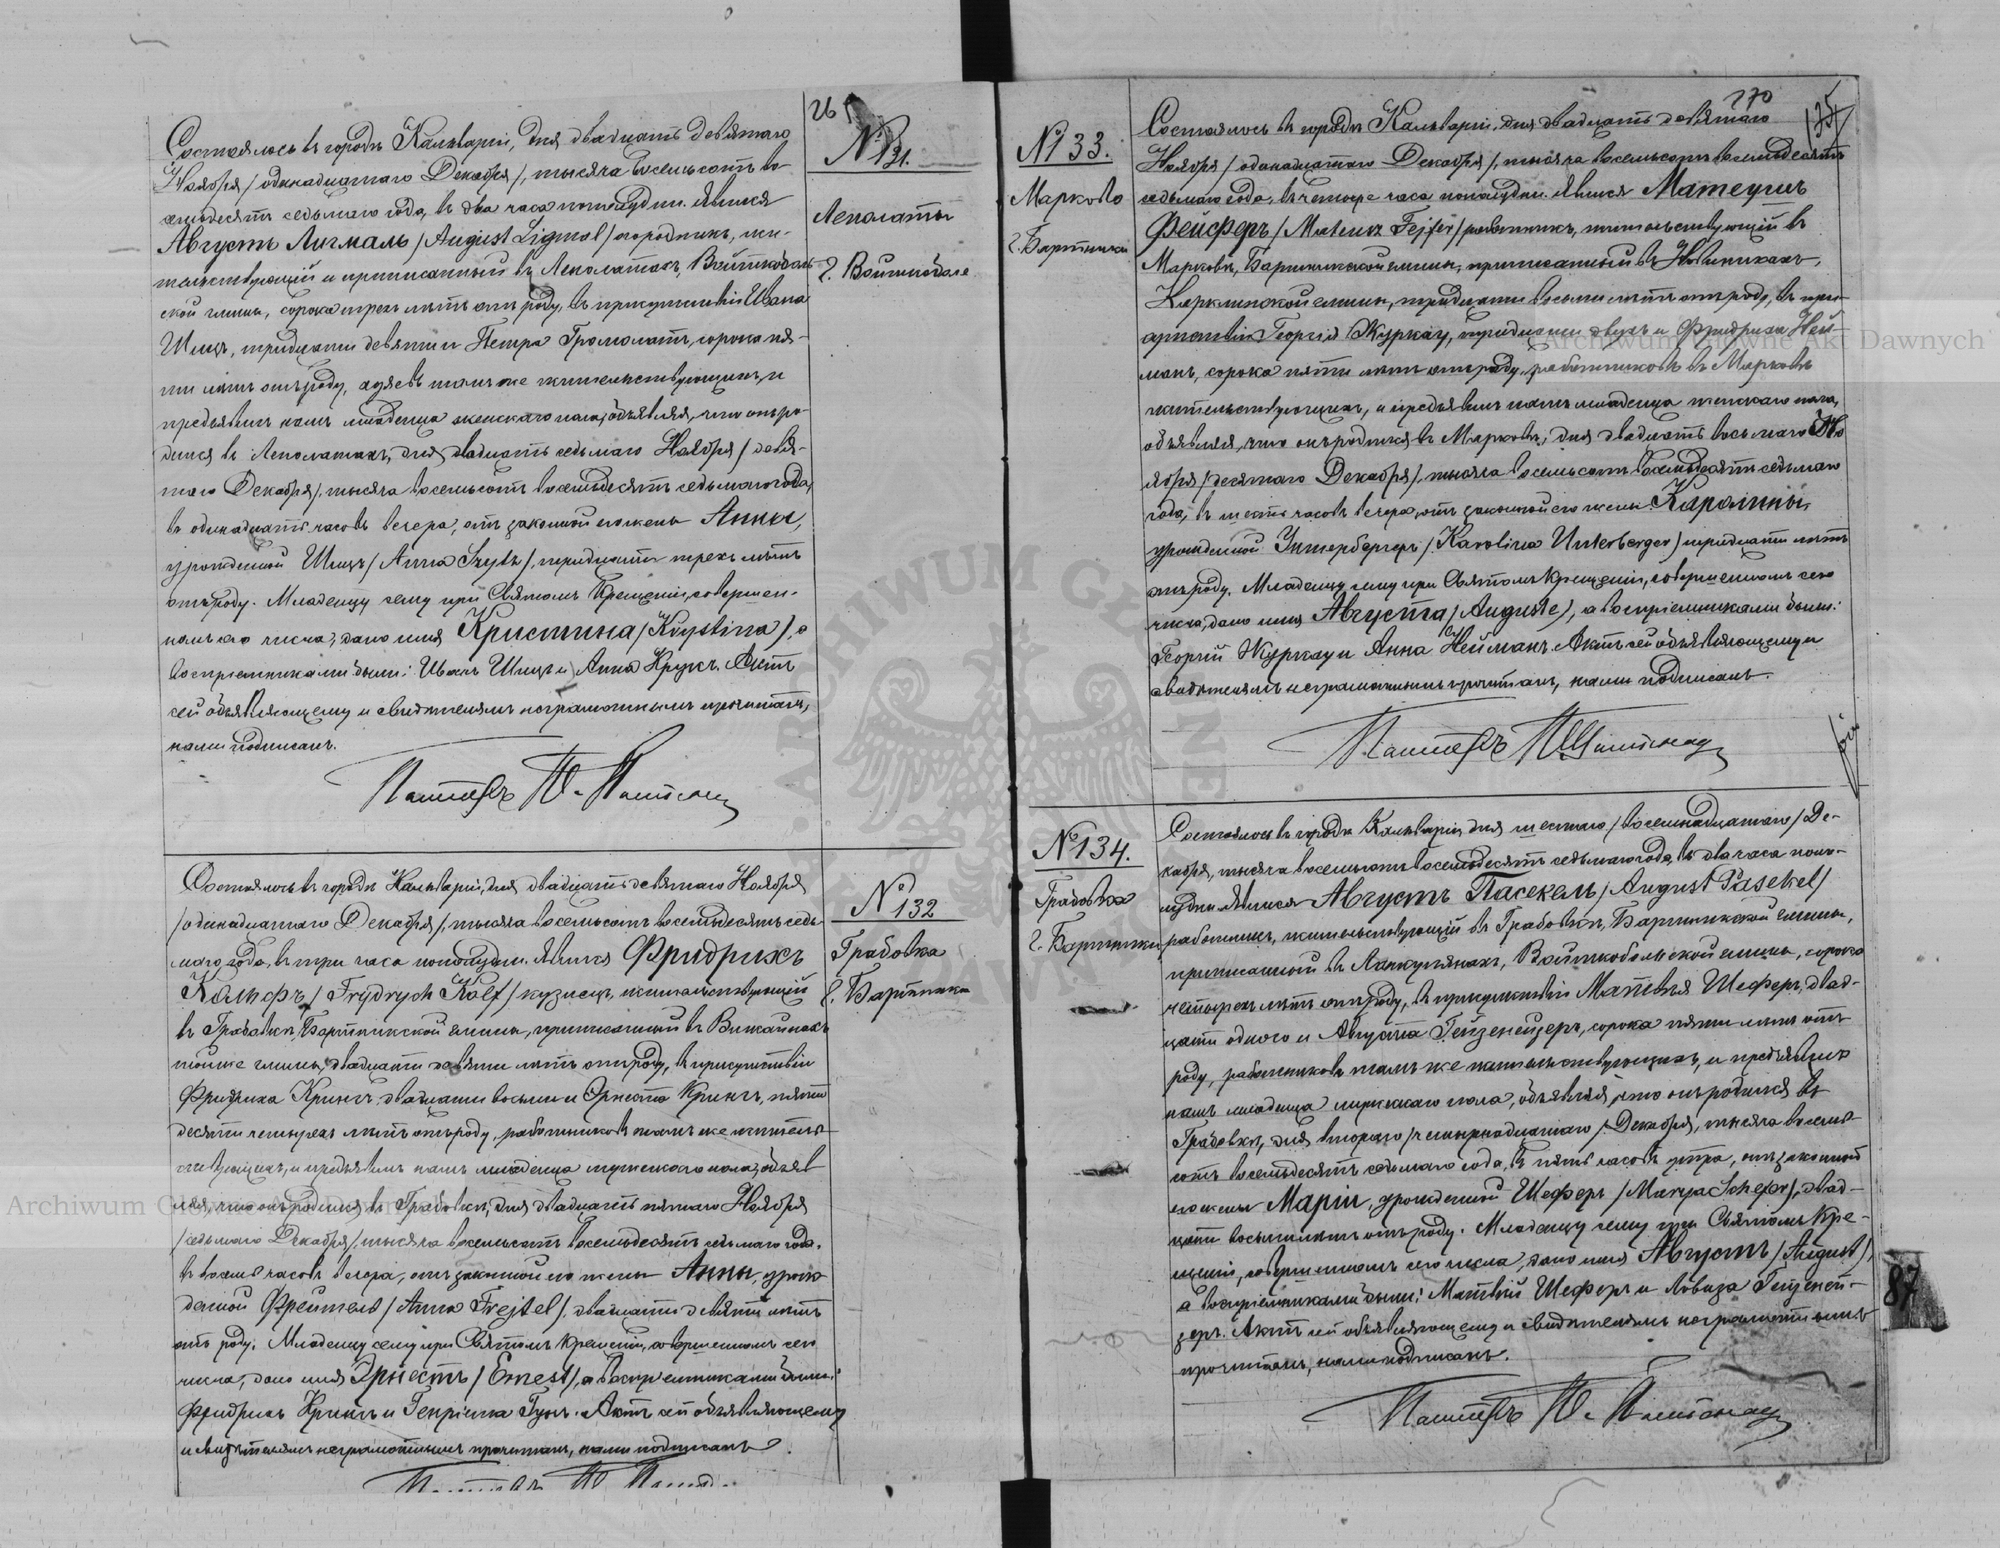 26
№ 131.
Леполаты
г. Войткоболе
Состоялось въ городѣ Кальваріи, дня двадцать девятаго
Ноября /одинадцатаго Декабря/, тысяча восемьсотъ во-
семьдесятъ седьмаго года, въ два часа пополудни. Явился
Августъ Лигмаль /August Ligmal/ огородникъ, жи-
тельствующій и приписанный въ Леполатахъ, Войткоболь-
ской гмины, сорока трехъ лѣтъ отъ роду, въ присутствіи Ивана
Шицъ, тридцати девяти и Петра Громолатъ, сорока пя-
ти лѣтъ отъ роду, въ тамъ же жительствующихъ, и
предъявилъ намъ младенца женскаго пола, объявляя, что онъ ро-
дился въ Леполатахъ, дня двадцать седьмаго Ноября /девя-
таго Декабря/, тысяча восемьсотъ восемьдесятъ седьмаго года,
въ одинадцать часовъ вечера, отъ законной его жены Анны,
урожденной Шицъ /Anna Szyts/, тридцати трехъ лѣтъ
отъ роду. Младенцу сему при Святомъ Крещеніи, совершен-
номъ сего числа, дано имя Кристина /Krystina/, а
воспріемниками были: Иванъ Шицъ и Анна Крукъ. Актъ
сей объявляющему и свидѣтелямъ неграмотнымъ прочитанъ,
нами подписанъ.
Пасторъ
№ 132
Грабовка
г. Бартники
Состоялось въ городѣ Кальваріи, дня двадцать девятаго Ноября
/одинадцатаго Декабря/, тысяча восемьсотъ восемьдесятъ седь-
маго года, въ три часа пополудни. Явился Фридрихъ
Кольфъ /Frydrych Kolf/ кузнецъ, жительствующій
въ Грабовкѣ, Бартникской гмины, приписанный въ Вижайнахъ
той же гмины, двадцати девяти лѣтъ отъ роду, въ присутствіи
Фридриха Кринкъ, двадцати восьми и Эрнста Кринкъ, пяти-
десяти четырехъ лѣтъ отъ роду, работниковъ тамъ же житель-
ствующихъ, и предъявилъ намъ младенца мужескаго пола, объяв-
ляя, что онъ родился въ Грабовкѣ, дня двадцать пятаго Ноября
/седьмаго Декабря/, тысяча восемьсотъ восемьдесятъ седьмаго года,
въ восемь часовъ вечера, отъ законной его жены Анны, урож-
денной Фрейтель /Anna Frejtel/, двадцати девяти лѣтъ
отъ роду. Младенцу сему при Святомъ Крещеніи, совершенномъ сего
числа, дано имя Эрнестъ /Ernest/, а воспріемниками были:
Фридрихъ Кринкъ и Генріета Гунъ. Актъ сей объявляющему
и свидѣтелямъ неграмотнымъ прочитанъ, нами подписанъ.
270
135
№ 133.
Марково
г. Бартники
Состоялось въ городѣ Кальваріи, дня двадцать девятаго
Ноября /одинадцатаго Декабря/, тысяча восемьсотъ восемьдесятъ
седьмаго года, въ четыре часа пополудни. Явился Матеушъ
Фейферъ /Mateusz Fejfer/ работникъ, жительствующій въ
Марковѣ, Бартникской гмины, приписанный въ Новиникахъ,
Кирклинской гмины, тридцати восьми лѣтъ отъ роду, въ при-
сутствіи Георгія Журкау, тридцати двухъ и Фридриха Ней-
манъ, сорока пяти лѣтъ отъ роду, работниковъ въ Марковѣ
жительствующихъ, и предъявилъ намъ младенца женскаго пола,
объявляя, что онъ родился въ Марковѣ, дня двадцать восьмаго Но-
ября /десятаго Декабря/, тысяча восемьсотъ восемьдесятъ седьмаго
года, въ шесть часовъ вечера, отъ законной его жены Каролины,
урожденной Унтербергеръ /Karolina Unterberger/ тридцати лѣтъ
отъ роду. Младенцу сему при Святомъ Крещеніи, совершенномъ сего
числа, дано имя Августа /Auguste/, а воспріемниками были:
Георгій Журкау и Анна Нейманъ. Актъ сей объявляющему и
свидѣтелямъ неграмотнымъ прочитанъ, нами подписанъ.
Пасторъ
№ 134.
Грабовка
г. Бартники
Состоялось въ городѣ Кальваріи, дня шестаго /восемнадцатаго/ Де-
кабря, тысяча восемьсотъ восемьдесятъ седьмаго года, въ два часа попо-
лудни. Явился Августъ Пасекель /August Pasekel/
работникъ, жительствующій въ Грабовкѣ, Бартникской гмины,
приписанный въ Ланкупянахъ, Войткобольской гмины, сорока
четырехъ лѣтъ отъ роду, въ присутствіи Матвѣя Шеферъ, двад-
цати одного и Августа Гейзенейцеръ, сорока пяти лѣтъ отъ
роду, работниковъ тамъ же жительствующихъ, и предъявилъ
намъ младенца мужескаго пола, объявляя, что онъ родился въ
Грабовкѣ, дня втораго /четырнадцатаго/ Декабря, тысяча восемь-
сотъ восемьдесятъ седьмаго года, въ пять часовъ утра, отъ законной
его жены Маріи, урожденной Шеферъ /Marya Schefer/, двад-
цати восьми лѣтъ отъ роду. Младенцу сему при Святомъ Кре-
щеніи, совершенномъ сего числа, дано имя Августъ /August/,
а воспріемниками были: Матвѣй Шеферъ и Ловиза Гейзеней-
церъ. Актъ сей объявляющему и свидѣтелямъ неграмотнымъ
прочитанъ, нами подписанъ.
Пасторъ
87
Archiwum Główne Akt Dawnych
Archiwum Główne Akt Dawnych